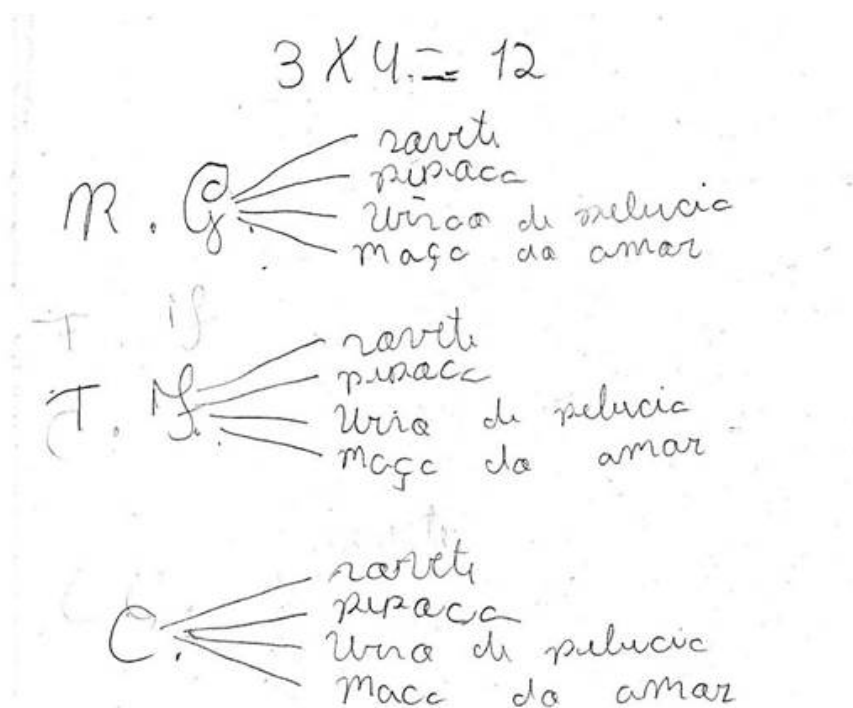 3 X 4 = 12
R. G.
sorvete
pipoca
Urso de pelucia
maça do amor
T. F.
sorvete
pipoca
Urso de pelucia
maça do amor
C.
sorvete
pipoca
Urso de pelucia
maça do amor